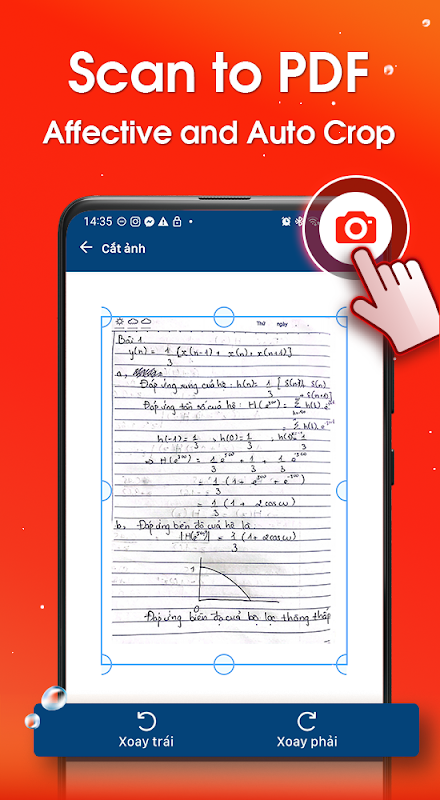 Scan to PDF
Affective and Auto Crop
14:35
Cắt ảnh
Thứ ngày
Bài 1
y(n) = 1/3 [x(n-1) + x(n) + x(n+1)]
a,
Đáp ứng xung của hệ: h(n) = 1/3 [δ(n)
+ δ(n+1)]
Đáp ứng tần số của hệ: H(e^jω) = Σ h(k) e
= Σ h(k) e
h(-1) = 1/3, h(0) = 1/3, h(1) = 1/3
⇒ H(e^jω) = 1/3 e^jω + 1/3 + 1/3 e^-jω
= 1/3 (1 + e^jω + e^-jω)
= 1/3 (1 + 2cosω)
b, Đáp ứng biên độ của hệ là
|H(e^jω)| = (1 + 2cosω)
3
1
0
Đáp ứng biên độ của bộ lọc thông thấp
Xoay trái
Xoay phải